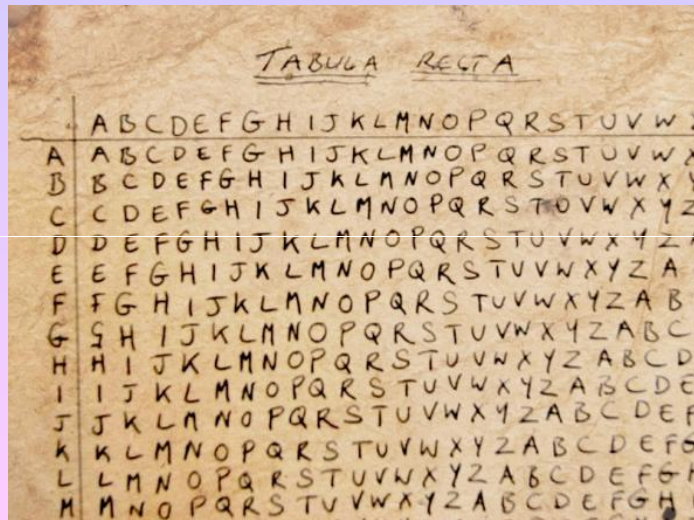 TABULA RECTA
A B C D E F G H I J K L M N O P Q R S T U V W X
A A B C D E F G H I J K L M N O P Q R S T U V W X
B B C D E F G H I J K L M N O P Q R S T U V W X Y
C C D E F G H I J K L M N O P Q R S T U V W X Y Z
D D E F G H I J K L M N O P Q R S T U V W X Y Z A
E E F G H I J K L M N O P Q R S T U V W X Y Z A
F F G H I J K L M N O P Q R S T U V W X Y Z A B
G G H I J K L M N O P Q R S T U V W X Y Z A B C
H H I J K L M N O P Q R S T U V W X Y Z A B C D
I I J K L M N O P Q R S T U V W X Y Z A B C D E
J J K L M N O P Q R S T U V W X Y Z A B C D E F
K K L M N O P Q R S T U V W X Y Z A B C D E F G
L L M N O P Q R S T U V W X Y Z A B C D E F G
M M N O P Q R S T U V W X Y Z A B C D E F G H